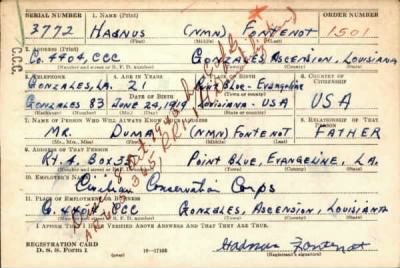 SERIAL NUMBER 1. NAME (Print) ORDER NUMBER
3772 HADNUS (NMN) FONTENOT 1501
(First) (Middle) (Last)
C.C.C.
2. ADDRESS (Print)
Co. 4404, CCC GONZALES, ASCENSION, LOUISIANA
(Number and street or R. F. D. number) (Town) (County) (State)
3. TELEPHONE 4. AGE IN YEARS 5. PLACE OF BIRTH 6. COUNTRY OF CITIZENSHIP
GONZALES, LA. 21 BLUE - EVANGELINE
DATE OF BIRTH
GONZALES 83 JUNE 24, 1919 LOUISIANA - USA USA
7. NAME OF PERSON WHO WILL ALWAYS KNOW YOUR ADDRESS 8. RELATIONSHIP OF THAT PERSON
MR. DUMA (NMN) FONTENOT FATHER
(Mr., Mrs., Miss) (First) (Middle) (Last)
9. ADDRESS OF THAT PERSON
RT. 4. BOX 35 POINT BLUE, EVANGELINE, LA.
(Number and street or R. F. D. number) (Town) (County) (State)
10. EMPLOYER'S NAME
Civilian Conservation Corps
11. PLACE OF EMPLOYMENT OR BUSINESS
Co. 4404 CCC GONZALES, ASCENSION, LOUISIANA
(Number and street or R. F. D. number) (Town) (County) (State)
I AFFIRM THAT I HAVE VERIFIED ABOVE ANSWERS AND THAT THEY ARE TRUE.
REGISTRATION CARD
D. S. S. Form 1 16-17105 Hadnus Fontenot
(Registrant's signature)